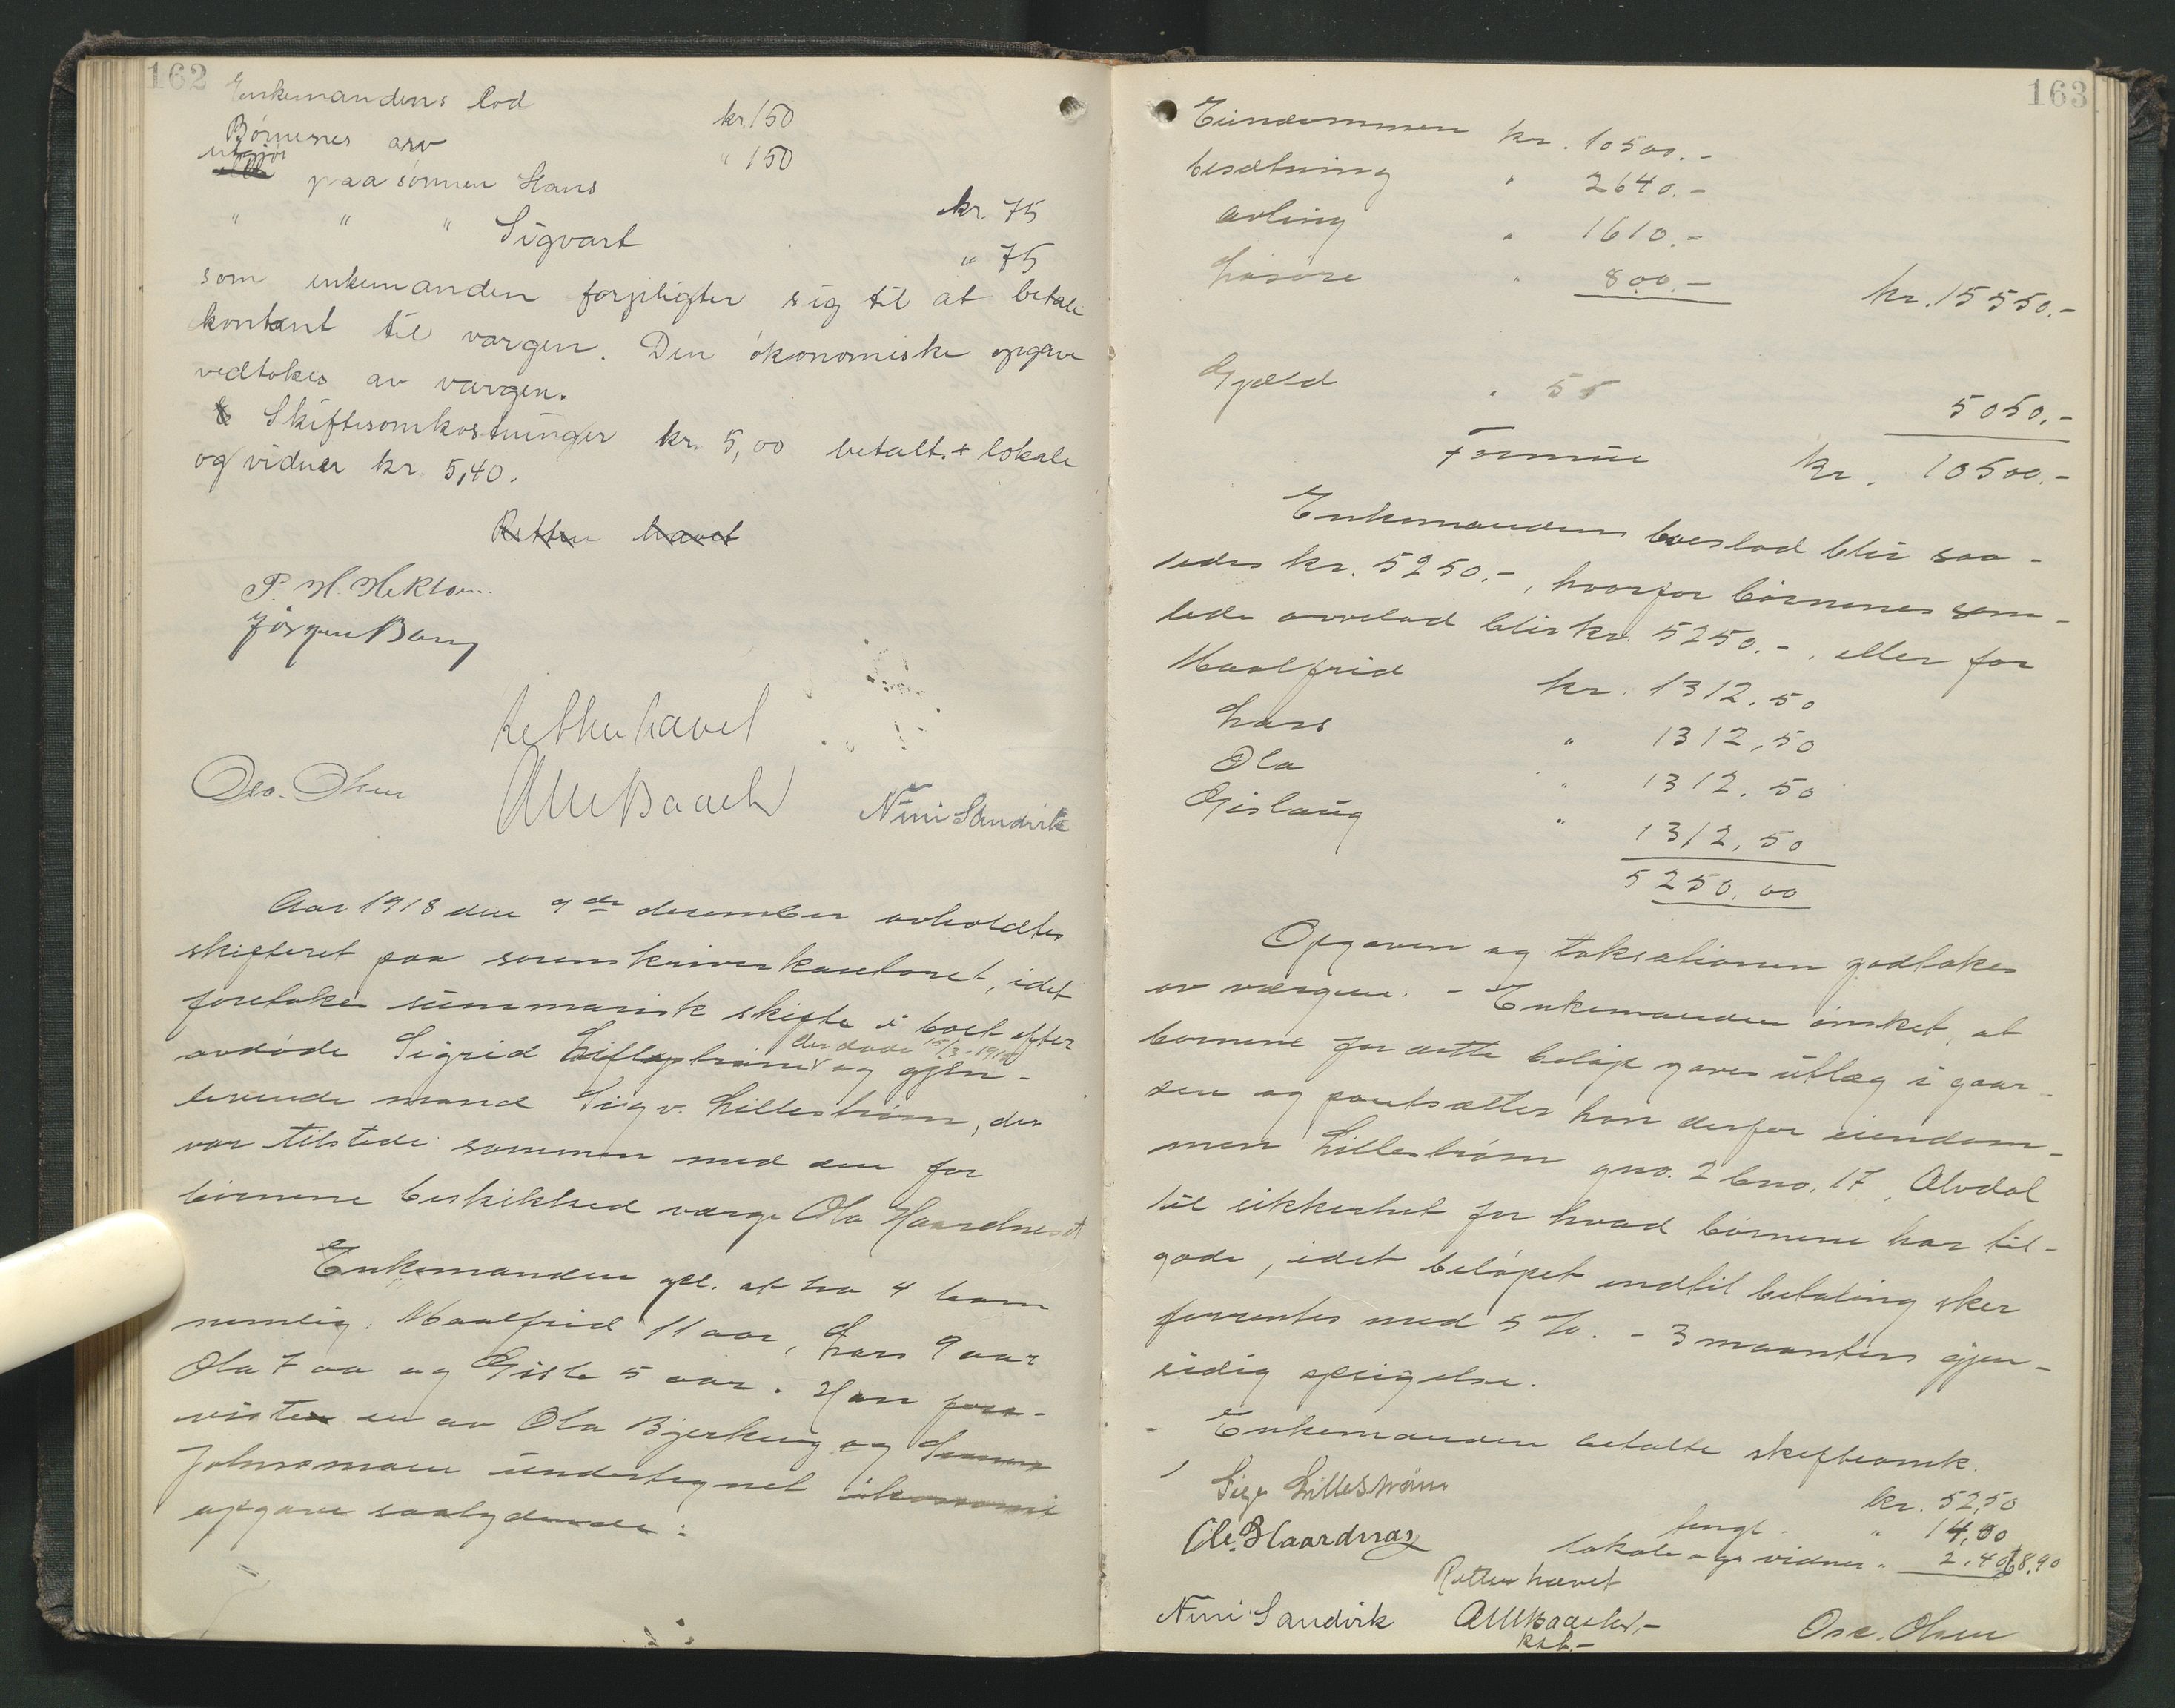 162
Enkemandens lod kr. 150
Børnenes arv " 150
utgjør
paa sønnen Hans kr. 75
" " " Sigvart " 75
som enkemanden forpligter sig til at betale
kontant til vergen. Den økonomiske opgave
vedtokes av værgen.
Skiftesomkostninger kr. 5,00 betalt. + lokale
og vidner kr. 5,40.
Retten hævet
P. H.
Jørgen Bang
Retten hævet
Osc. Olsen Nini Sandvik
Aar 1918 den 9de desember avholdtes
skifteret paa sorenskriverkontoret, idet
foretokes summarisk skifte i boet efter
der døde 15/3-1918
avdøde Sigrid Lillestrøm og gjen-
levende mand Sigv. Lillestrøm, der
var tilstede sammen med den for
børnene beskikked værge Ola
Enkemanden opl. at ha 4 barn
nemlig: Maalfrid 11 aar, Lars 9 aar
Ola 7 aa og Gisle 5 aar. Han fore-
viste en av Ola Bjerkeng og
undertegnet
opgave saalydende:
163
Eiendommen kr. 10500.-
besætning " 2640.-
avling " 1610.-
Løsøre " 800.- kr. 15550.-
Gjæld " 5050.-
Formue kr. 10500.-
Enkemandens boeslod blir saa-
ledes kr. 5250.-, hvorfor børnenes sam-
lede arvelod blir kr. 5250.-, eller for
Maalfrid kr. 1312.50
Lars " 1312,50
Ola " 1312.50
Gislaug " 1312,50
5250,00
Opgaven og taksationen godtokes
av værgen. - Enkemanden ønsket, at
børnene for dette beløp gaves utlæg i gaar-
den og pantsætter han derfor eiendom-
men Lillestrøm gno. 2 bno. 17, Alvdal
til sikkerhet for hvad børnene har til-
gode, idet beløpet indtil betaling sker
forrentes med 5 %. - 3 maaneters gjen-
sidig opsigelse.
- Enkemanden betalte skifteomk.
kr. 52,50
Sigv Lillestrøm
tingl. " 14,00
Ole Haardnas
lokale og vidner " 2.40 68,90
Retten hævet
Nini Sandvik Osc. Olsen